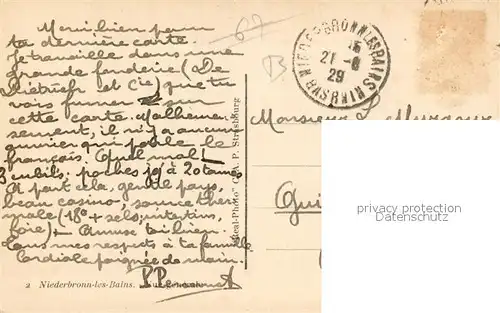 Merci bien pour
ta dernière carte.
Je travaille dans une
grande fonderie (De
Dietrich et Cie) que tu
vois fumer sur
cette carte. Malheureu
sement, il n'y a aucun
ouvrier qui parle le
français. Quel mal!
3 cubilots; poches jq à 20 tonnes
A part cela, gentil pays,
beau casino, source ther
male (18° + sels, intestins,
foie) — Amuse toi bien.
Tous mes respects à ta famille
Cordiale poignée de main.
67
B
NIEDERBRONN-LES-BAINS
BAS-RHIN
21 -8
29
Monsieur L.
"Réal-Photo" C. A. P. Strasbourg
privacy protection
Datenschutz
2 Niederbronn-les-Bains. Vue générale